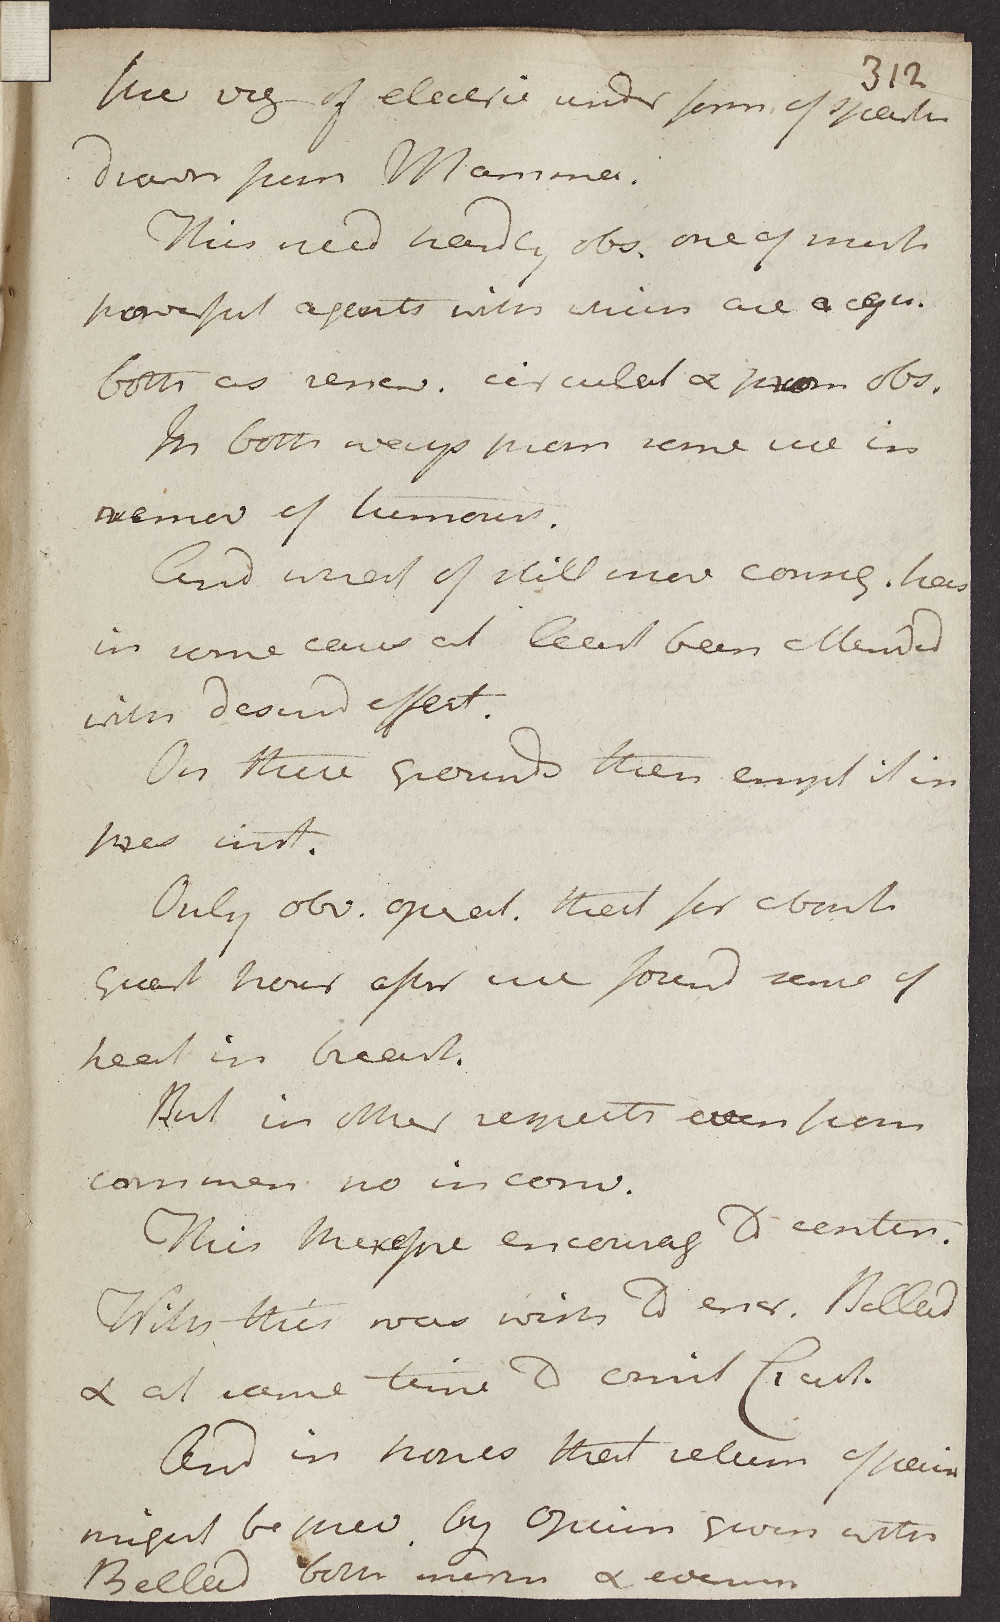 312
the reg of electric under form of sparks
drawn from Mamma.
This need hardly obs. one of most
powerful agents with which are acqu.
both as resen. circulat & prom obs.
In both ways prom some use in
remov of tumours.
And what of still mor conseq. has
in some cases at least been attended
with desired effect.
On these grounds then empl it in
pres inst.
Only obv. operat. that for about
quart hour after use found sense of
heat in breast.
But in other respects even from
commen no inconv.
This therefore encourag to contin.
With this was wish to exer. Bellad
& at same time to omit Crust.
And in hopes that return of pain
might be prev. by Opium given with
Bellad both morn & evenin